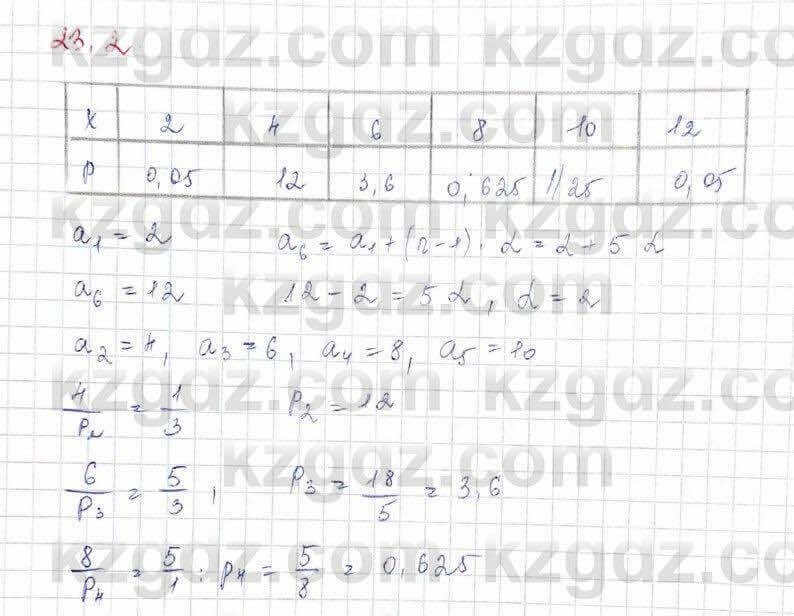 23.2
x 2 4 6 8 10 12
P 0,05 12 3,6 0,625 1/25 0,05
a₁ = 2 a₆ = a₁ + (n-1) · d = 2 + 5 d
a₆ = 12 12 - 2 = 5 d, d = 2
a₂ = 4, a₃ = 6, a₄ = 8, a₅ = 10
4/P₂ = 1/3 P₂ = 12
6/P₃ = 5/3, P₃ = 18/5 = 3,6
8/P₄ = 5/1 : P₄ = 5/8 = 0,625
kzgdz.com